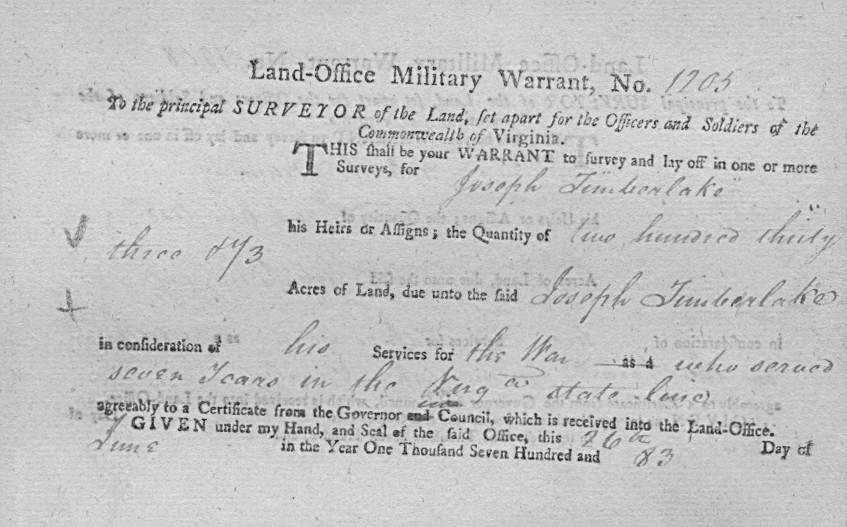 Land-Office Military Warrant, No. 1205
To the principal SURVEYOR of the Land, set apart for the Officers and Soldiers of the
Commonwealth of Virginia.
THIS shall be your WARRANT to survey and lay off in one or more
Surveys, for Joseph Timberlake
his Heirs or Assigns; the Quantity of two hundred thirty
three &
Acres of Land, due unto the said Joseph Timberlake
in consideration of his Services for the War as a who served
seven Years in the Virga state line
agreeably to a Certificate from the Governor and Council, which is received into the Land-Office.
GIVEN under my Hand, and Seal of the said Office, this 26th Day of
June in the Year One Thousand Seven Hundred and 83